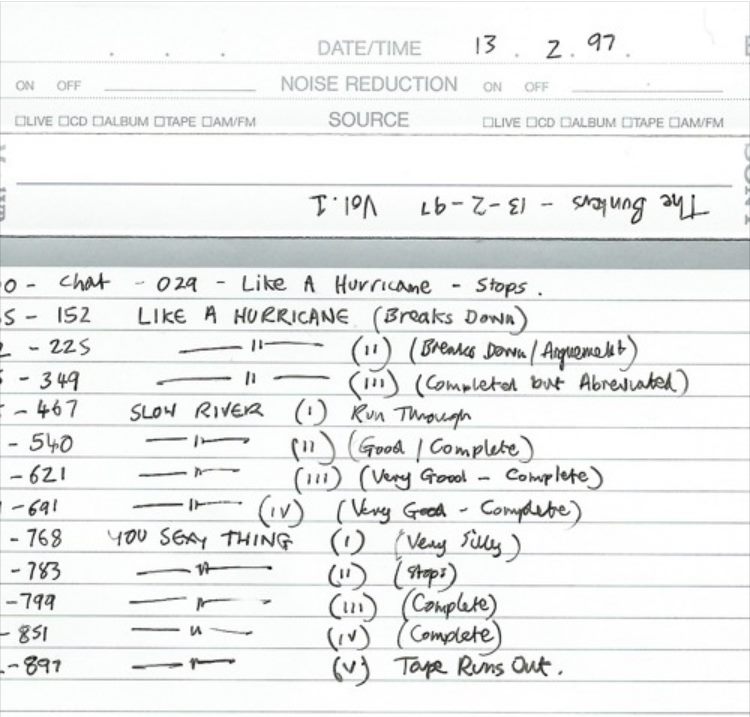 DATE/TIME 13 . 2 . 97 .
ON OFF NOISE REDUCTION ON OFF
□LIVE □CD □ALBUM □TAPE □AM/FM SOURCE □LIVE □CD □ALBUM □TAPE □AM/FM
The Bunkers - 13-2-97 Vol.1
0 - Chat - 029 - Like A Hurricane - Stops .
5 - 152 LIKE A HURRICANE (Breaks Down)
- 225 —— " —— (II) (Breaks Down / Arguement)
- 349 —— " —— (III) (Completed but Abreviated)
- 467 SLOW RIVER (I) Run Through
- 540 —— " —— (II) (Good / Complete)
- 621 —— " —— (III) (Very Good - Complete)
- 691 —— " —— (IV) (Very Good - Complete)
- 768 YOU SEXY THING (I) (Very Silly)
- 783 —— " —— (II) (Stops)
- 799 —— " —— (III) (Complete)
- 851 —— " —— (IV) (Complete)
- 897 —— " —— (V) Tape Runs Out .